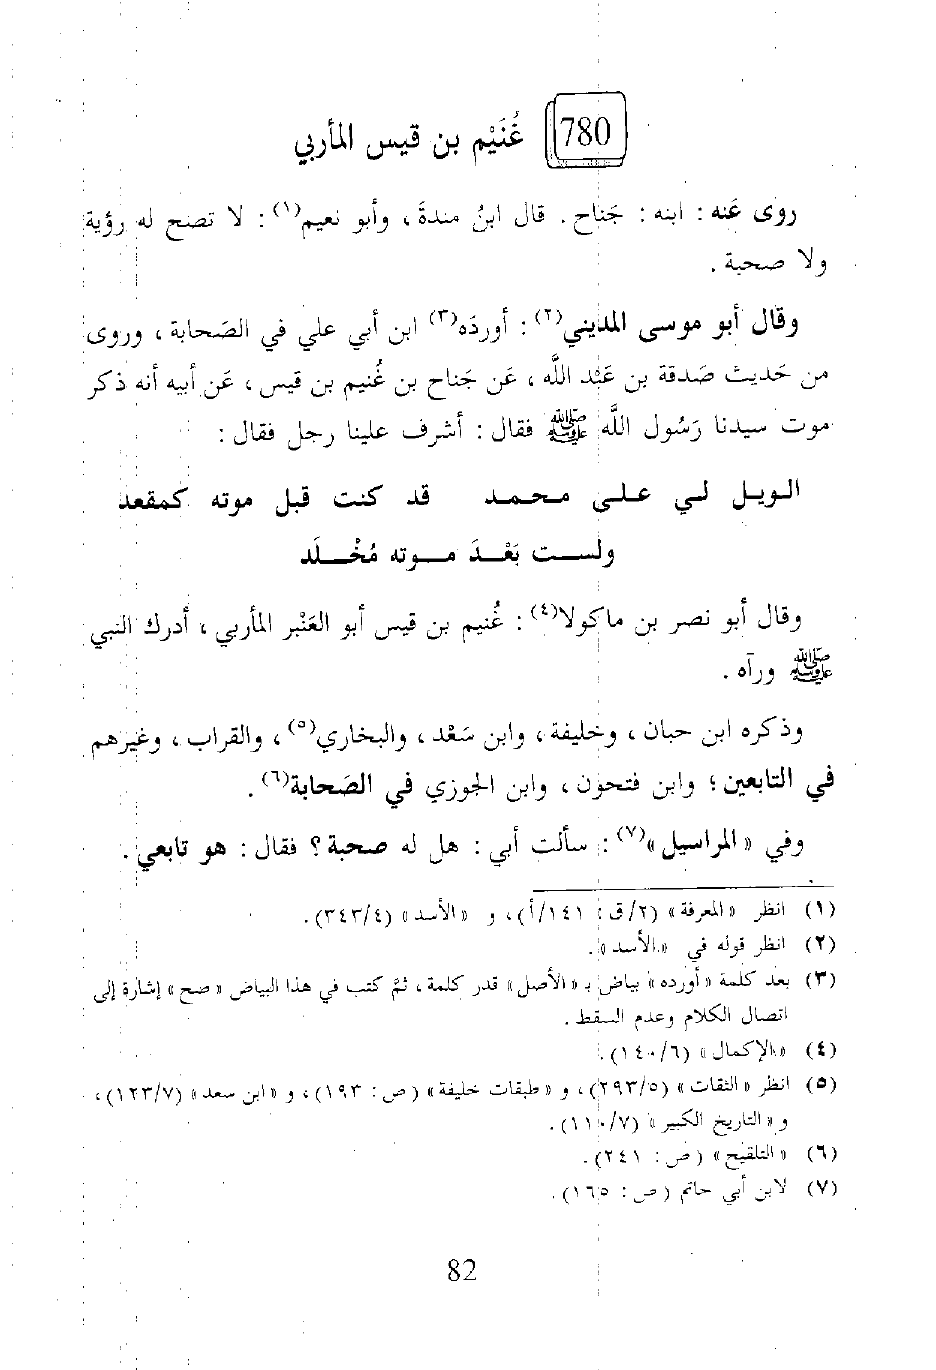 780 غُنَيْم بن قيس المأربي
روى عَنه : ابنه : جَناح . قال ابنُ مندةَ ، وأبو نعيم(١) : لا تصح له رؤية
ولا صحبة .
وقال أبو موسى المديني(٢) : أوردَه(٣) ابن أبي علي في الصَحابة ، وروى
من حَديث صَدقة بن عَبْد اللَّه ، عَن جَناح بن غُنيم بن قيس ، عَن أبيه أنه ذكر
موت سيدنا رَسُول اللَّه ﷺ فقال : أشرف علينا رجل فقال :
الويل لي على محمد قد كنت قبل موته كمقعد
ولست بَعْدَ موته مُخْلَد
وقال أبو نصر بن ماكولا(٤) : غُنيم بن قيس أبو العَنْبر المأربي ، أدرك النبي
ﷺ ورآه .
وذكره ابن حبان ، وخليفة ، وابن سَعْد ، والبخاري(٥) ، والقراب ، وغيرهم
في التابعين ؛ وابن فتحون ، وابن الجوزي في الصَحابة(٦) .
وفي « المراسيل »(٧) : سألت أبي : هل له صحبة ؟ فقال : هو تابعي .
(١) انظر « المعرفة » (٢/ق : ١٤١/أ) ، و « الأسد » (٣٤٣/٤) .
(٢) انظر قوله في « الأسد » .
(٣) بعد كلمة « أورده » بياض بـ « الأصل » قدر كلمة ، ثمَّ كتب في هذا البياض « صح » إشارة إلى
اتصال الكلام وعدم السقط .
(٤) « الإكمال » (١٤٠/٦) .
(٥) انظر « الثقات » (٢٩٣/٥) ، و « طبقات خليفة » (ص : ١٩٣) ، و « ابن سعد » (١٢٣/٧) ،
و « التاريخ الكبير » (١١٠/٧) .
(٦) « التلقيح » (ص : ٢٤١) .
(٧) لابن أبي حاتم (ص : ١٦٥) .
82